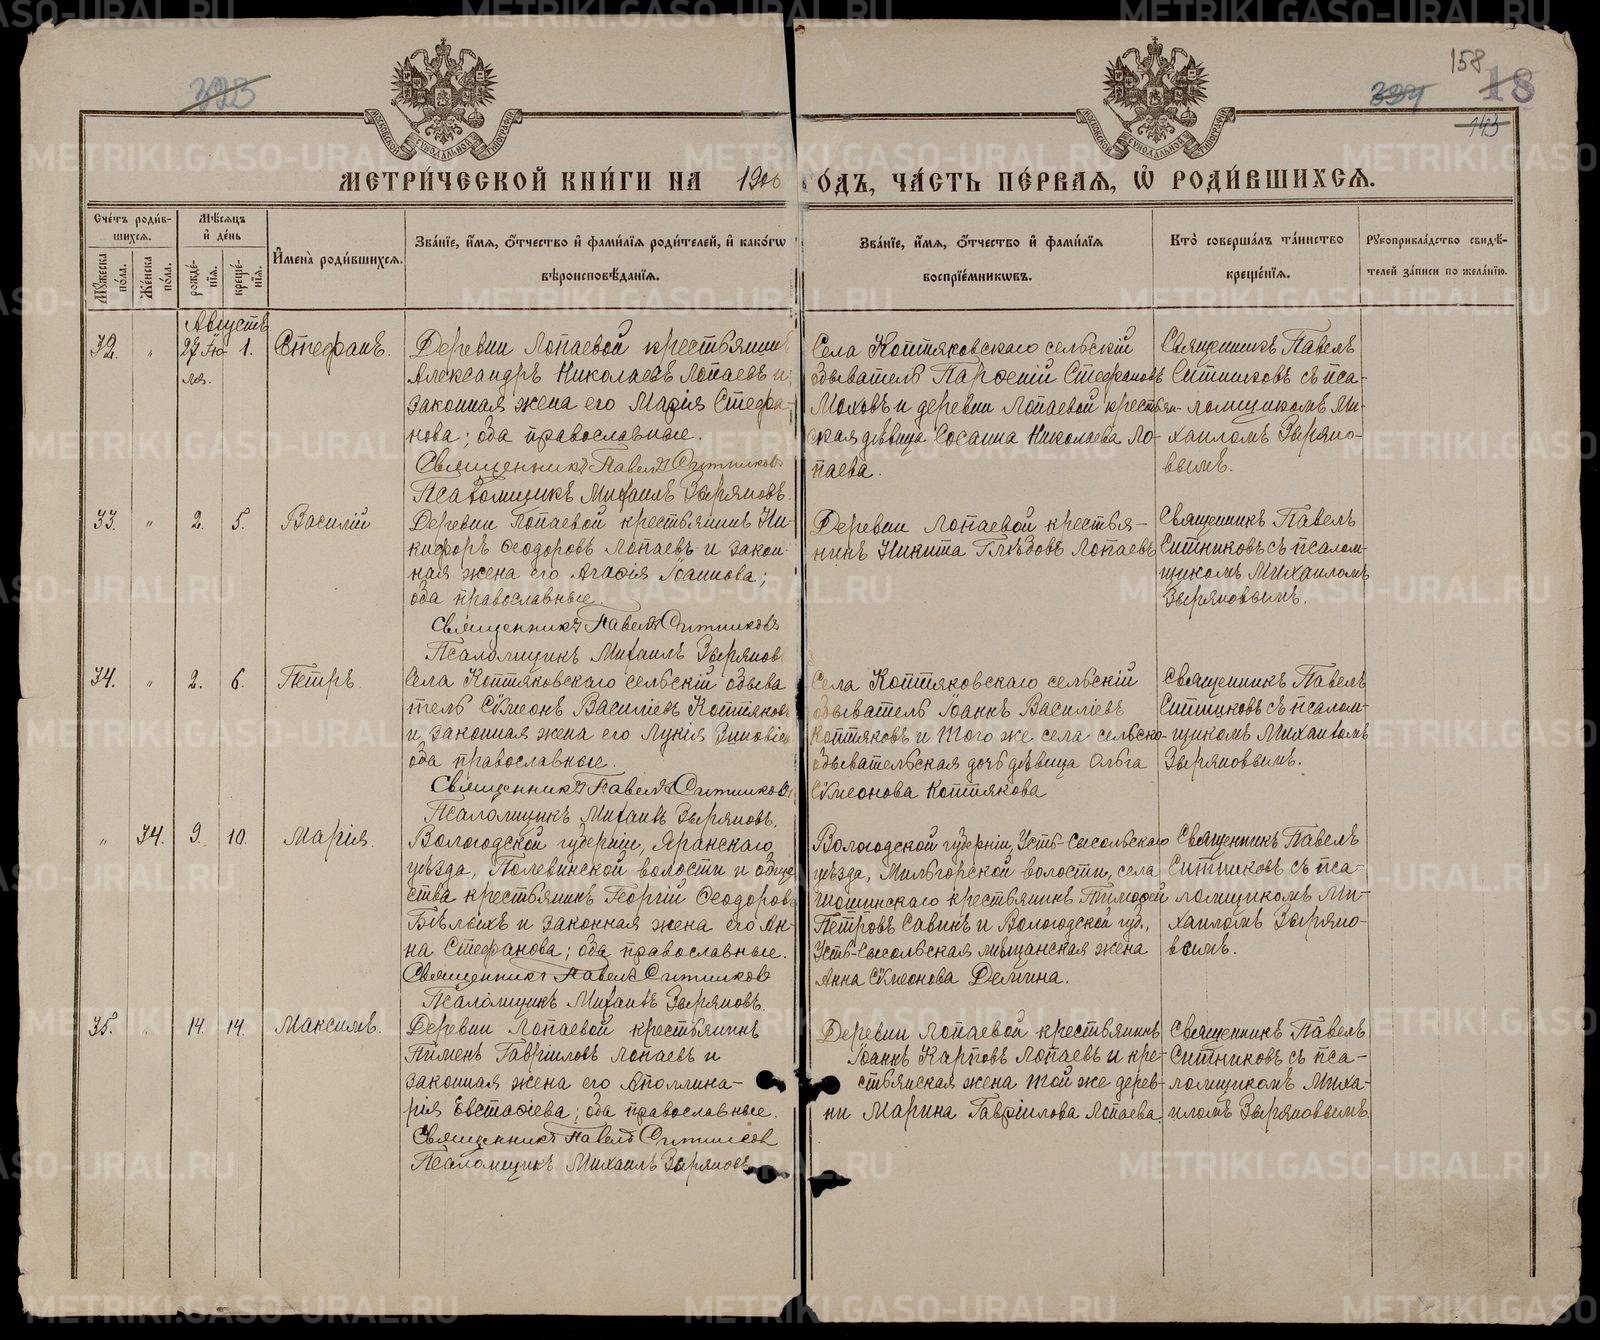 325
158
18
334
143
МОСКОВСКОЙ СѴНОДАЛЬНОЙ ТИПОГРАФІИ
МОСКОВСКОЙ СѴНОДАЛЬНОЙ ТИПОГРАФІИ
МЕТРИ́ЧЕСКОЙ КНИ́ГИ НА 1906 ГОДЪ, ЧА́СТЬ ПЕ́РВАЯ, Ѡ҆ РОДИ́ВШИХСЯ.
Сче́тъ роди́в-
шихся.
Мѣ́сяцъ
и҆ де́нь
Мꙋ́жеска по́ла.
Же́нска по́ла.
рожде́-нїя.
креще́-нїя.
И҆мена̀ роди́вшихся.
Зва́нїе, и҆́мя, ѻ҆́тчество и҆ фами́лїя роди́телей, и҆ како́гѡ
вѣроисповѣ́данїя.
Зва́нїе, и҆́мя, ѻ҆́тчество и҆ фами́лїя
воспрїе́мникѡвъ.
Кто̀ соверша́лъ та́инство
креще́нїя.
Рꙋкоприкла́дство свидѣ́-
телей за́писи по жела́нїю.
Августъ
32. " 27 Ію- 1. Стефанъ.
ля.
Деревни Лопаевой крестьянинъ
Александръ Николаевъ Лопаевъ и
законная жена его Марія Стефа-
нова; оба православные.
Священникъ Павелъ Ситниковъ
Псаломщикъ Михаилъ Зыряновъ.
Села Коптяковскаго сельскій
обыватель Парѳеній Стефановъ
Моховъ и деревни Лопаевой крестьян-
ская дѣвица Сосанна Николаева Ло-
паева.
Священникъ Павелъ
Ситниковъ съ пса-
ломщикомъ Ми-
хаиломъ Зыряно-
вымъ.
33. " 2. 5. Василій
Деревни Лопаевой крестьянинъ Ни-
кифоръ Ѳеодоровъ Лопаевъ и закон-
ная жена его Агафія Іоаннова;
оба православные.
Священникъ Павелъ Ситниковъ
Псаломщикъ Михаилъ Зыряновъ
Деревни Лопаевой крестья-
нинъ Никита Глѣбовъ Лопаевъ
Священникъ Павелъ
Ситниковъ съ псалом-
щикомъ Михаиломъ
Зыряновымъ.
34. " 2. 6. Петръ.
Села Коптяковскаго сельскій обыва
тель Сѵмеонъ Василіевъ Коптяковъ
и законная жена его Лукія Зиновіева
оба православные.
Священникъ Павелъ Ситниковъ
Псаломщикъ Михаилъ Зыряновъ.
Села Коптяковскаго сельскій
обыватель Іоаннъ Василіевъ
Коптяковъ и того же села сельско-
обывательская дочь дѣвица Ольга
Сѵмеонова Коптякова
Священникъ Павелъ
Ситниковъ съ псалом-
щикомъ Михаиломъ
Зыряновымъ.
" 34. 9. 10. Марія.
Вологодской губерніи, Яранскаго
уѣзда, Полевинской волости и обще
ства крестьянинъ Георгій Ѳеодоровъ
Бѣлыхъ и законная жена его Ан-
на Стефанова; оба православные.
Священникъ Павелъ Ситниковъ
Псаломщикъ Михаилъ Зыряновъ.
Вологодской губерніи, Усть-Сысольскаго
уѣзда, Мыльгорской волости, села
крестьянинъ Тимофей
Петровъ Савинъ и Вологодской губ.,
Усть-Сысольская мѣщанская жена
Анна Сѵмеонова Демина.
Священникъ Павелъ
Ситниковъ съ пса-
ломщикомъ Ми-
хаиломъ Зыряно-
вымъ.
35. " 14. 14. Максимъ.
Деревни Лопаевой крестьянинъ
Пименъ Гавріиловъ Лопаевъ и
законная жена его Аполлина-
рія Евстафіева; оба православные.
Священникъ Павелъ Ситниковъ
Псаломщикъ Михаилъ Зыряновъ
Деревни Лопаевой крестьянинъ
Іоаннъ Карповъ Лопаевъ и кре-
стьянская жена той же дерев-
ни Марина Гавріилова Лопаева.
Священникъ Павелъ
Ситниковъ съ пса-
ломщикомъ Миха-
иломъ Зыряновымъ.
METRIKI.GASO-URAL.RU